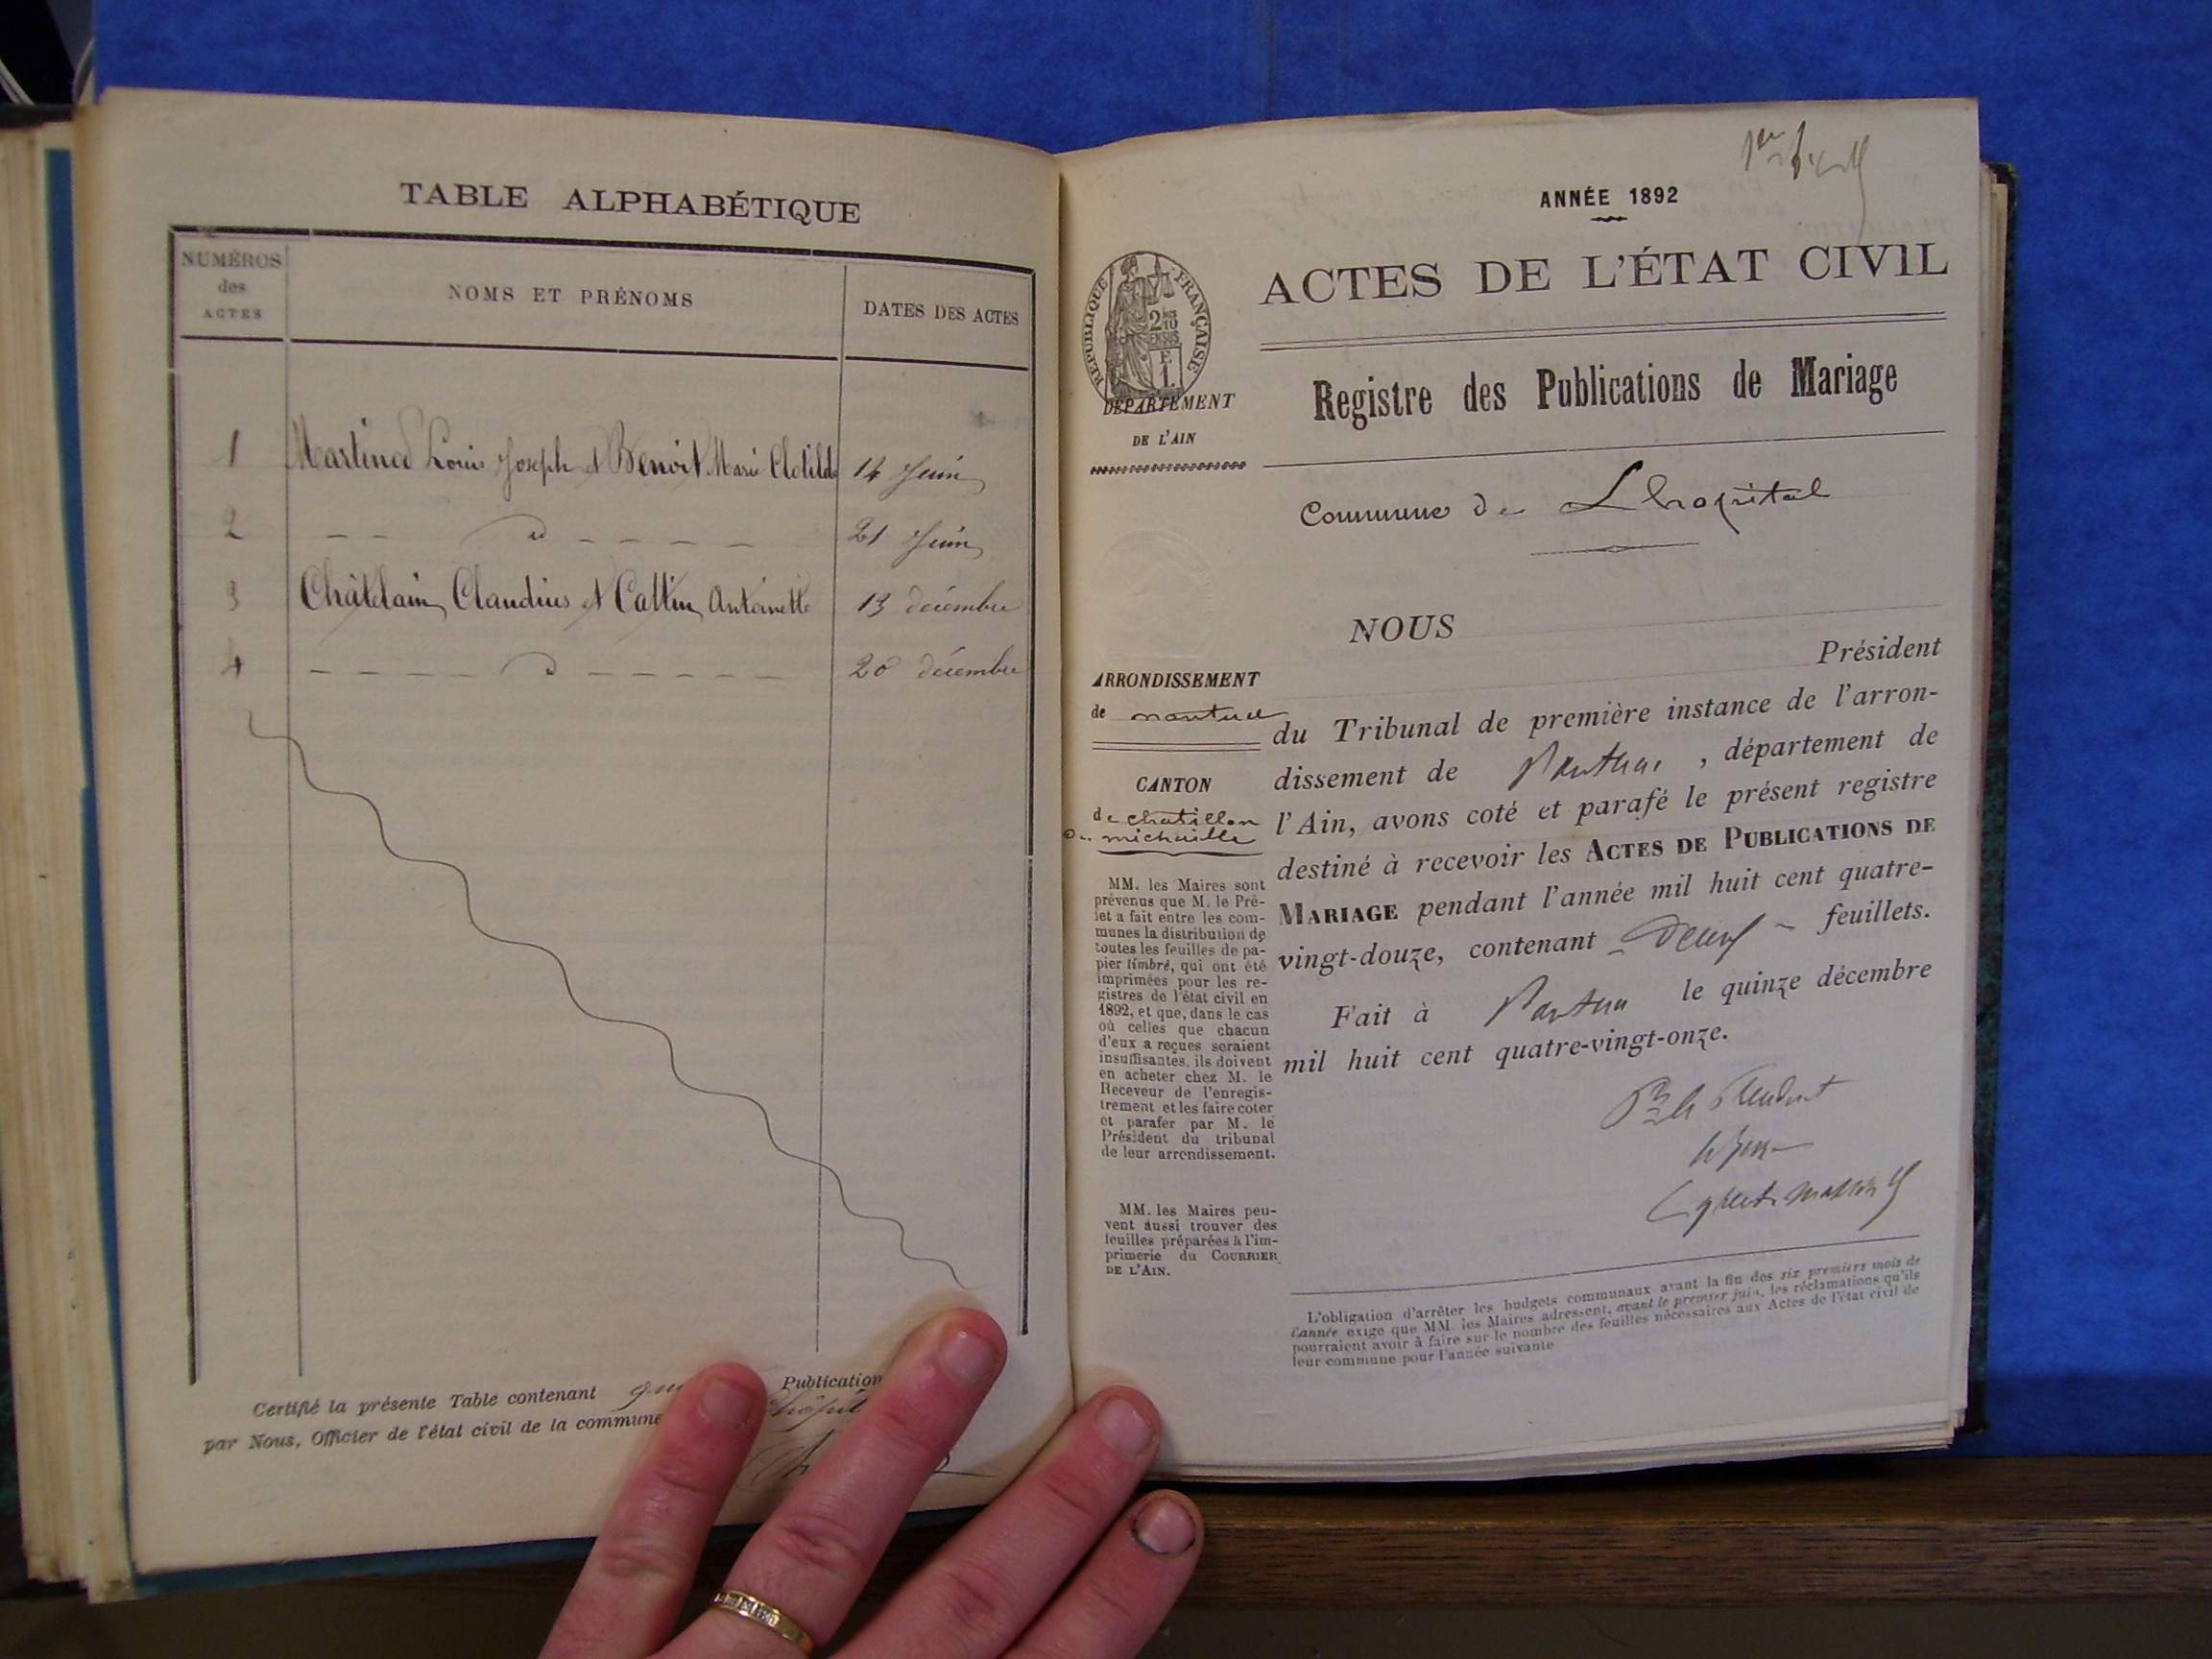 TABLE ALPHABÉTIQUE
NUMÉROS
des
ACTES
NOMS ET PRÉNOMS
DATES DES ACTES
1 Martinod Louis Joseph et Benoit Marie Clotilde 14 Juin
2 — — d — — — — 21 Juin
3 Châtelain Claudius et Cattin Antoinette 13 décembre
4 — — — — d — — — — — 20 décembre
Certifié la présente Table contenant Publication
par Nous, Officier de l'état civil de la commune
ANNÉE 1892
ACTES DE L'ÉTAT CIVIL
Registre des Publications de Mariage
Commune de Lhopital
RÉPUBLIQUE FRANÇAISE
DÉPARTEMENT
DE L'AIN
ARRONDISSEMENT
de nantua
CANTON
de chatillon
de michaille
MM. les Maires sont
prévenus que M. le Pré-
fet a fait entre les com-
munes la distribution de
toutes les feuilles de pa-
pier timbré, qui ont été
imprimées pour les re-
gistres de l'état civil en
1892, et que, dans le cas
où celles que chacun
d'eux a reçues seraient
insuffisantes, ils doivent
en acheter chez M. le
Receveur de l'enregis-
trement et les faire coter
et parafer par M. le
Président du tribunal
de leur arrondissement.
MM. les Maires peu-
vent aussi trouver des
feuilles préparées à l'im-
primerie du COURRIER
DE L'AIN.
NOUS
Président
du Tribunal de première instance de l'arron-
dissement de Nantua, département de
l'Ain, avons coté et parafé le présent registre
destiné à recevoir les ACTES DE PUBLICATIONS DE
MARIAGE pendant l'année mil huit cent quatre-
vingt-douze, contenant feuillets.
Fait à Nantua le quinze décembre
mil huit cent quatre-vingt-onze.
Pr le Président
le Juge
L'obligation d'arrêter les budgets communaux avant la fin des six premiers mois de
l'année exige que MM. les Maires adressent, avant le premier juin, les réclamations qu'ils
pourraient avoir à faire sur le nombre des feuilles nécessaires aux Actes de l'état civil de
leur commune pour l'année suivante